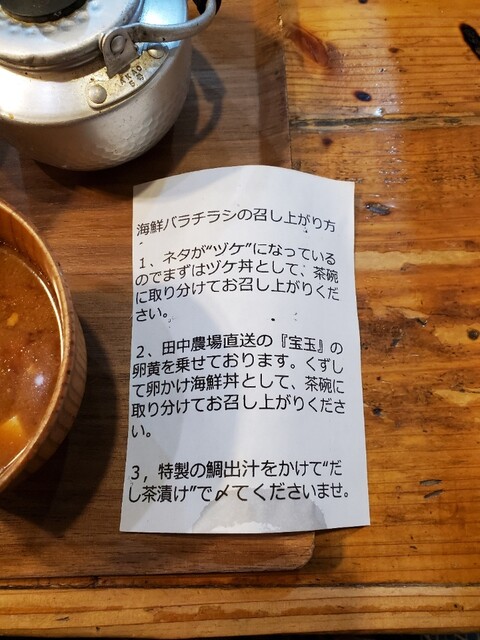 海鮮バラチラシの召し上がり方
１、ネタが“ヅケ”になっている
のでまずはヅケ丼として、茶碗
に取り分けてお召し上がりくだ
さい。
２、田中農場直送の『宝玉』の
卵黄を乗せております。くずし
て卵かけ海鮮丼として、茶碗に
取り分けてお召し上がりくださ
い。
３，特製の鯛出汁をかけて“だ
し茶漬け”で〆てくださいませ。